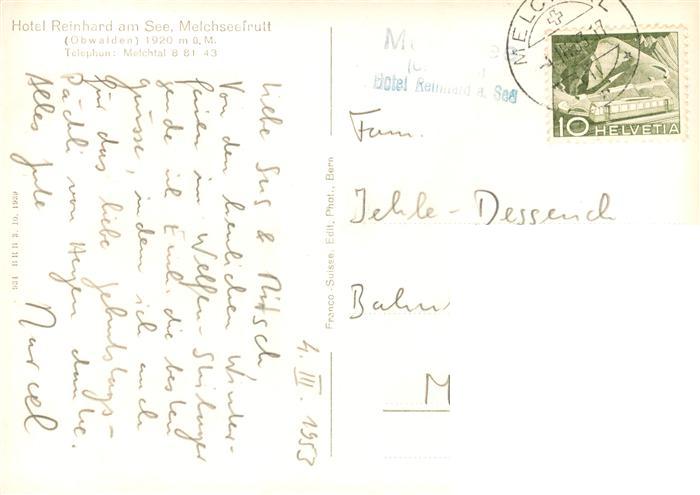 Hotel Reinhard am See, Melchseefrutt
(Obwalden) 1920 m ü. M.
Telephon: Melchtal 8 81 43
4. III. 1953
Liebe Sus &
Von den herrlichen Winter-
ferien im Welfen-Skilager
sende ich Euch die besten
Grüsse, in dem ich auch
für das liebe Geburtstags-
Päckli von Herzen danke.
Alles Gute
Marcel
Franco-Suisse, Edit. Phot., Bern
Hotel Reinhard a. See
MELCHTAL
10 HELVETIA
Fam.
Jehle-Desserich
Bahn
M